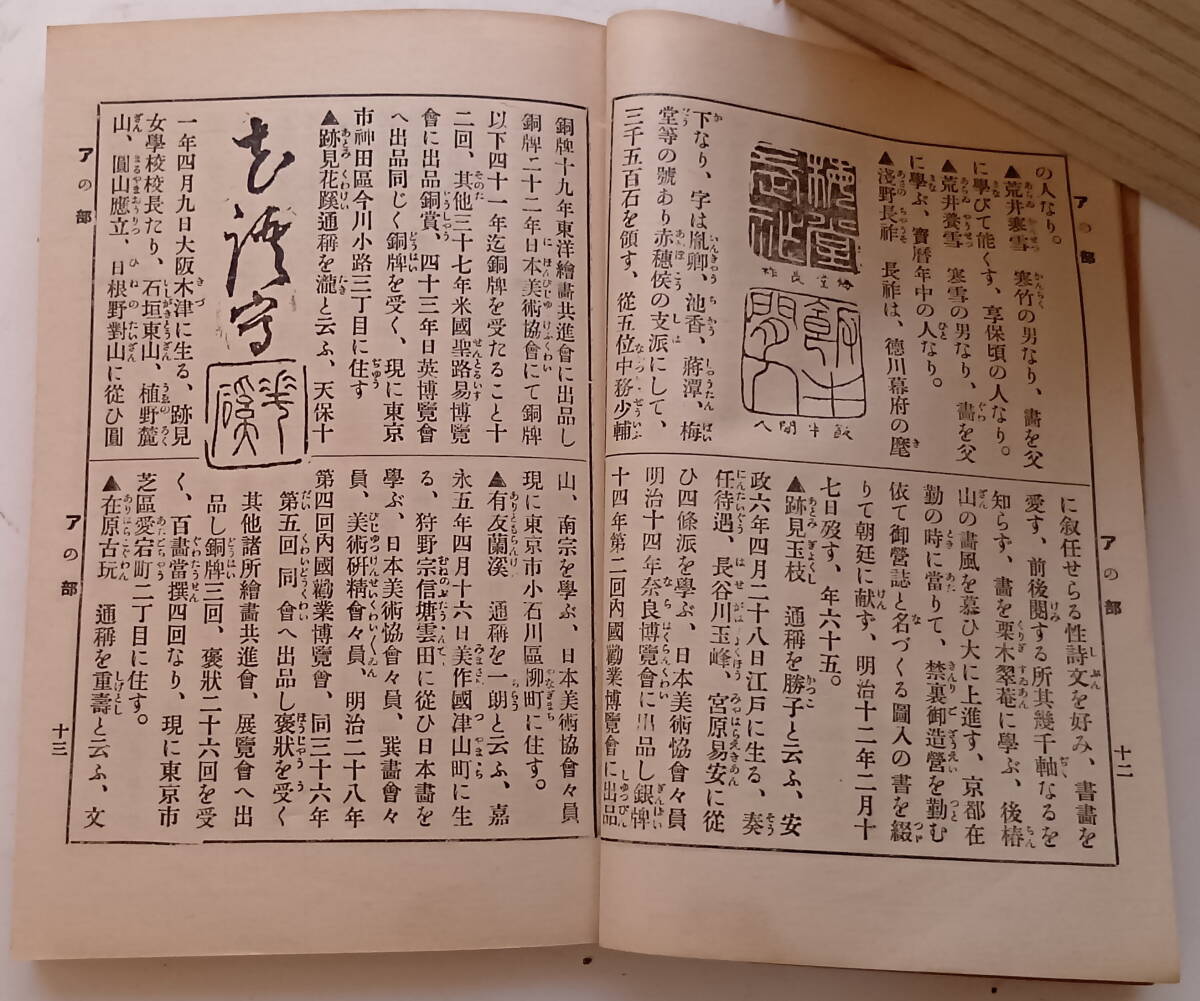 アの部
の人なり。
▲荒井寒雪　寒竹の男なり、畫を父
に學びて能くす、享保頃の人なり。
▲荒井養雪　寒雪の男なり、畫を父
に學ぶ、寶曆年中の人なり。
▲淺野長祚　長祚は、德川幕府の麾
梅堂長祚
飯牛閒人
下なり、字は胤卿、池香、蔣潭、梅
堂等の號あり赤穗侯の支派にして、
三千五百石を領す、從五位中務少輔
アの部
に叙任せらる性詩文を好み、書畫を
愛す、前後閱する所其幾千軸なるを
知らず、畫を栗木翠菴に學ぶ、後椿
山の畫風を慕ひ大に上進す、京都在
勤の時に當りて、禁裏御造營を勤む
依て御營誌と名づくる圖入の書を綴
りて朝廷に献ず、明治十二年二月十
七日歿す、年六十五。
▲跡見玉枝　通稱を勝子と云ふ、安
政六年四月二十八日江戸に生る、奏
任待遇、長谷川玉峰、宮原易安に從
ひ四條派を學ぶ、日本美術恊會々員
明治十四年奈良博覽會に出品し銀牌
十四年第二回內國勸業博覽會に出品
十二
銅牌十九年東洋繪畫共進會に出品し
銅牌二十二年日本美術協會にて銅牌
以下四十一年迄銅牌を受たること十
二回、其他三十七年米國聖路易博覽
會に出品銅賞、四十三年日英博覽會
へ出品同じく銅牌を受く、現に東京
市神田區今川小路三丁目に住す
▲跡見花蹊通稱を瀧と云ふ、天保十
花蹊
一年四月九日大阪木津に生る、跡見
女學校校長たり、石垣東山、植野麓
山、圓山應立、日根野對山に從ひ圓
アの部
山、南宗を學ぶ、日本美術協會々員
現に東京市小石川區柳町に住す。
▲有友蘭溪　通稱を一朗と云ふ、嘉
永五年四月十六日美作國津山町に生
る、狩野宗信塘雲田に從ひ日本畫を
學ぶ、日本美術協會々員、巽畫會々
員、美術硏精會々員、明治二十八年
第四回內國勸業博覽會、同三十六年
第五回同會へ出品し褒狀を受く
其他諸所繪畫共進會、展覽會へ出
品し銅牌三回、褒狀二十六回を受
く、百畫當撰四回なり、現に東京市
芝區愛宕町二丁目に住す。
▲在原古玩　通稱を重壽と云ふ、文
アの部
十三